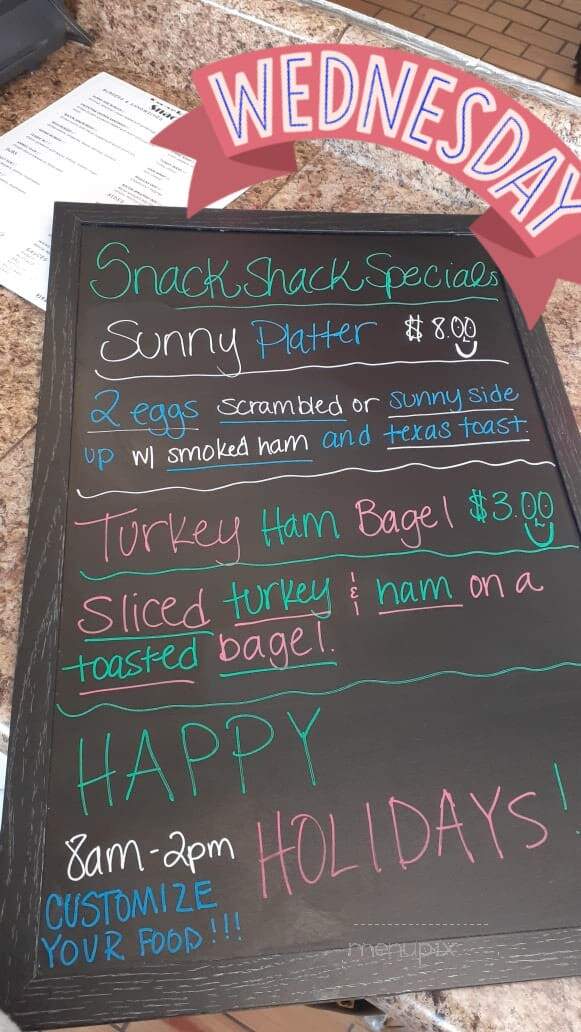 WEDNESDAY
Snack Shack Specials
Sunny Platter $8.00
2 eggs scrambled or sunny side
up w/ smoked ham and texas toast.
Turkey Ham Bagel $3.00
Sliced turkey & ham on a
toasted bagel.
HAPPY
HOLIDAYS!
8am-2pm
CUSTOMIZE
YOUR FOOD!!!
menupix